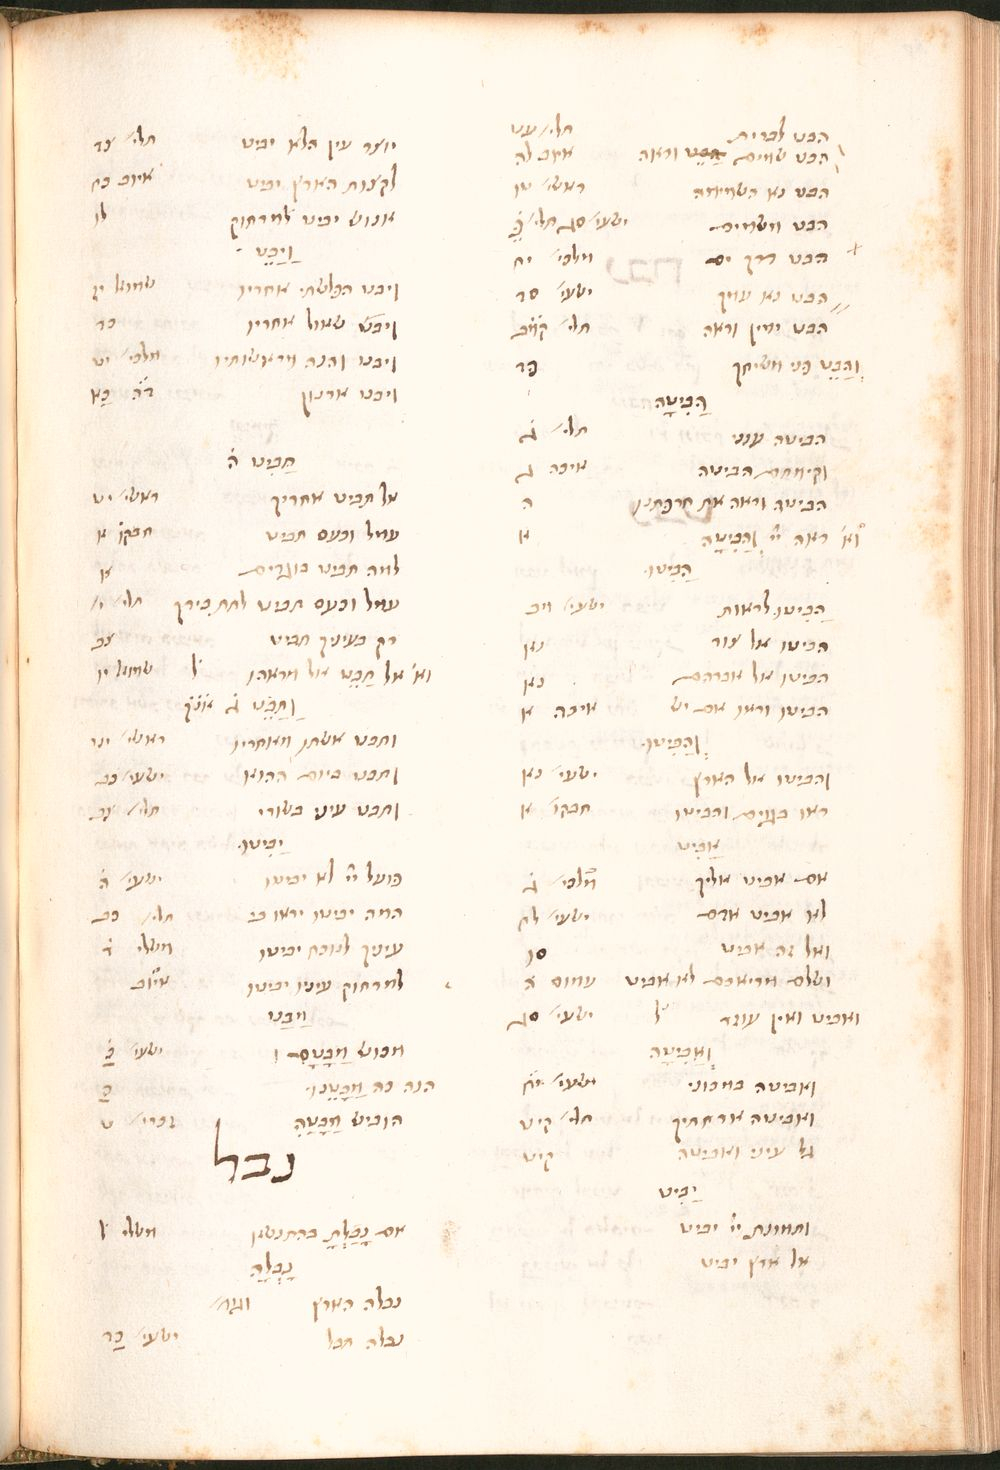 הבט לברית תהלי׳ עט
הבט שמים וראה איוב לה
הבט נא השמימה ראשי׳ טו
הבט משמים ישעי׳ סג תהלי׳ פ
הבט דרך ים מלכי׳ יח
הבט נא עמך ישעי׳ סד
הבט ימין וראה תהלי׳ קמב
וְהַבֵּט פני משיחך פד
הַבִּיטָה
הביטה ענני תהלי׳ יג
וקימתם הביטה איכה ג
הביטה וראה את חרפתנו ה
וא׳ ראה יי וְהַבִּיטָה א
הַבִּיטוּ
הַבִּיטוּ לראות ישעי׳ מב
הביטו אל צור נא
הביטו אל אברהם נא
הביטו וראו אם יש איכה א
וְהַבִּיטוּ
והביטו אל הארץ ישעי׳ נא
ראו בגוים והביטו חבקו׳ א
אַבִּיט
אם אביט אליך מלכי׳ ג
לא אביט אדם ישעי׳ לח
ואל זה אביט סו
ושלם מריאכם לא אביט עמוס ה
ואביט ואין עוזר ל׳ ישעי׳ סג
וְאַבִּיטָה
ואביטה במכוני ישעי׳ יח
ואביטה ארחתיך תהלי׳ קיט
גל עיני ואביטה קיט
יַבִּיט
ותמונת יי יביט
אל ארץ יביט
יוצר עין הלא יביט תהלי׳ צד
לקצות הארץ יביט איוב כח
אנוש יביט למרחוק לו
וַיַּבֵּט
ויבט הפלשתי אחריו שמואל יז
ויבט שאול אחריו כד
ויבט והנה מראשותיו מלכי׳ יט
ויבט ארנון דה כא
תַבִּיט ה
אל תביט אחריך ראשי׳ יט
עמל וכעס תביט חבקו׳ א
למה תביט בוגדים א
עמל וכעס תביט לתת בידך תהלי׳ י
רק בעיניך תביט צב
וא׳ אל תַּבֵּט אל מראהו ל׳ שמואל יו
וַתַּבֵּט ג
ותבט אשתו מאחריו ראשי׳ יט
ותבט ביום ההוא ישעי׳ כב
ותבט עיני בשורי תהלי׳ צב
יַבִּיטוּ
פועל יי לא יביטו ישעי׳ ה
המה יביטו יראו בי תהלי׳ כב
עיניך לנוכח יביטו משלי ד
למרחוק עיניו יביטו איוב
מַבָּט
מבוש מַבָּטָם ו ישעי׳ כ
הנה כה מַבָּטֵנוּ כ
הוביש מַבָּטָהּ זכרי׳ ט
נבל
אם נָבַלְתָּ בהתנשא משלי ל
נָבְלָה
נבלה הארץ וגו׳
נבלה תבל ישעי׳ כד